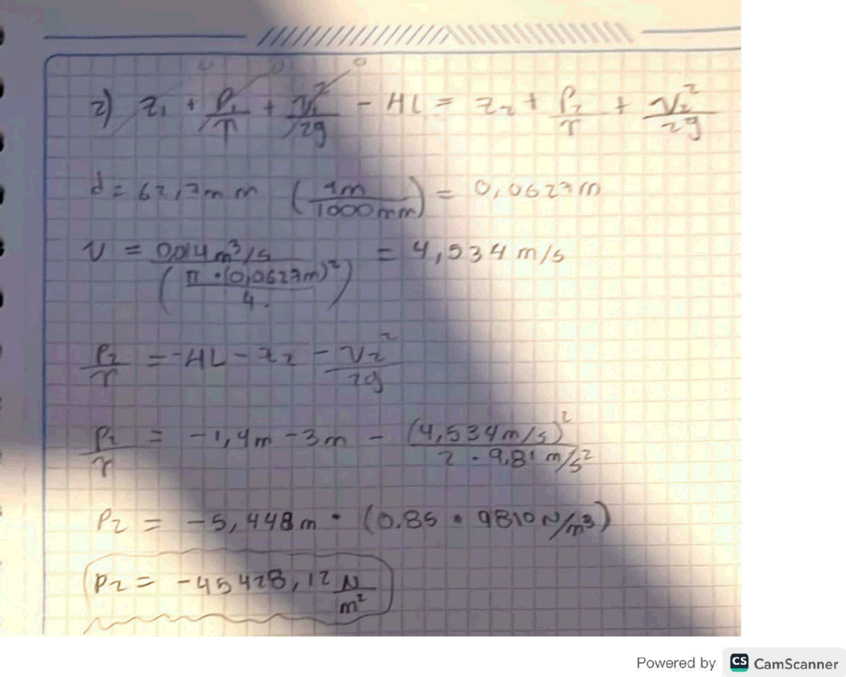 0 0 0
2) z₁ + P₁/γ + V₁²/2g - HL = z₂ + P₂/γ + V₂²/2g
d = 62,7mm (1m/1000mm) = 0,0627m
V = 0,014m³/s / (π·(0,0627m)²/4.) = 4,534 m/s
P₂/γ = -HL - z₂ - V₂²/2g
P₂/γ = -1,4m - 3m - (4,534m/s)²/2·9,81 m/s²
P₂ = -5,448m · (0.85 · 9810 N/m³)
P₂ = -45428,12 N/m²
Powered by CS CamScanner